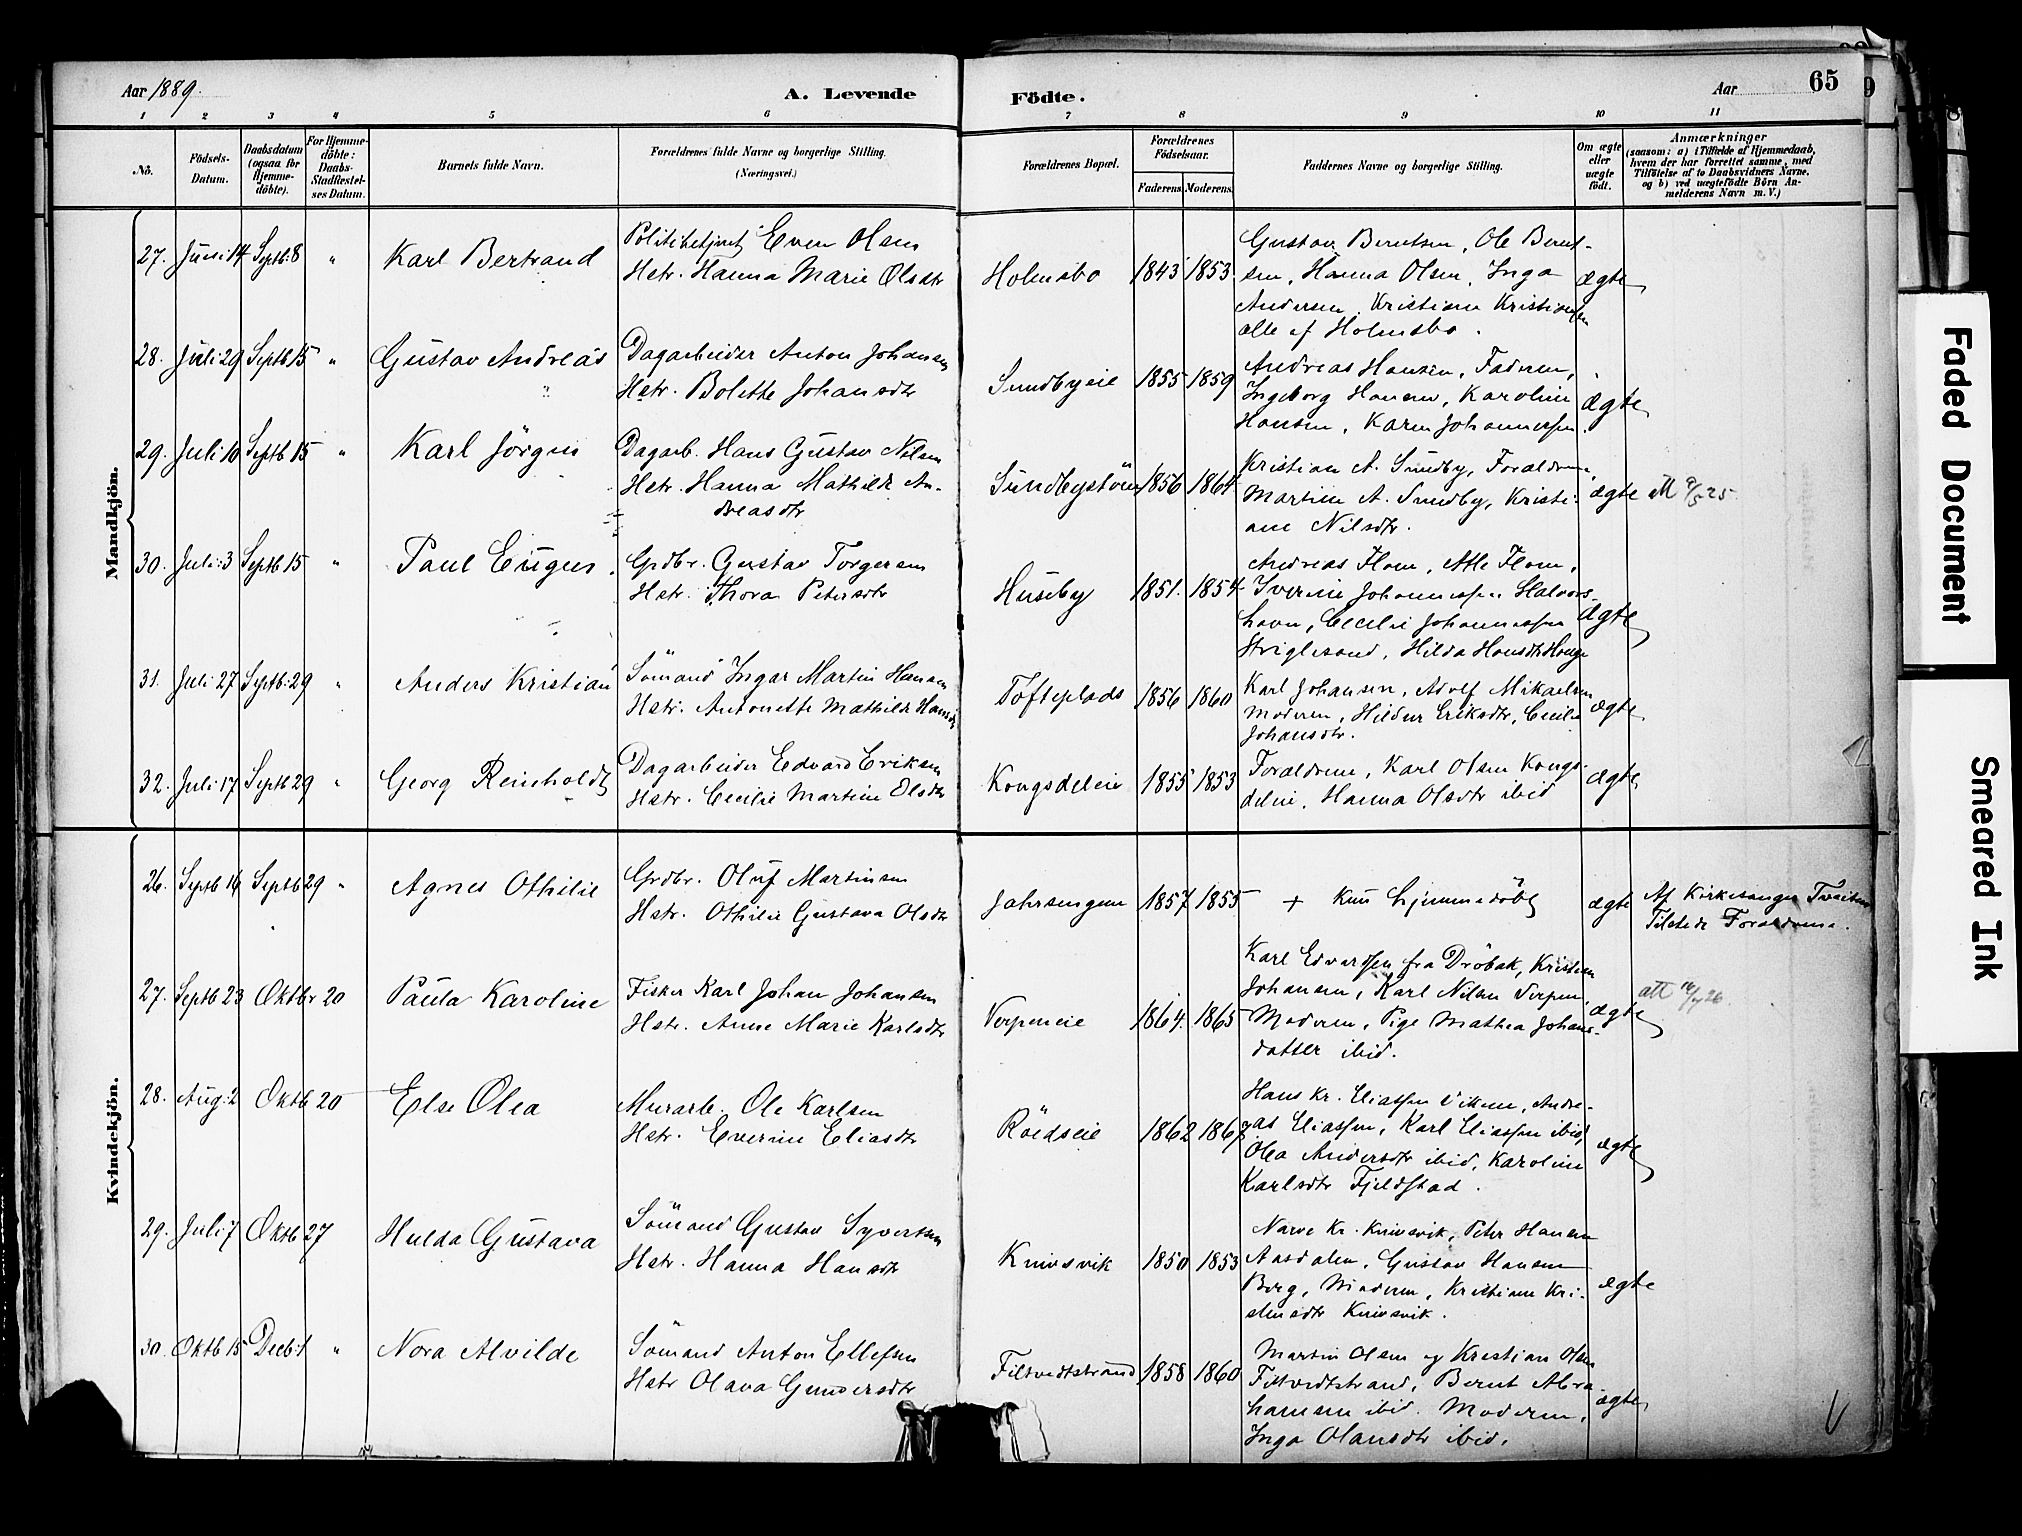 Aar 1889.
A. Levende
Födte.
Aar
65
1 2 3 4 5 6 7 8 9 10 11
No.
Födsels-
Datum.
Daabsdatum
(ogsaa for
Hjemme-
döbte).
For Hjemme-
döbte:
Daabs-
Stadfæstel-
ses Datum.
Barnets fulde Navn.
Forældrenes fulde Navne og borgerlige Stilling.
(Næringsvei.)
Forældrenes Bopæl.
Forældrenes
Födselsaar.
Faderens. Moderens.
Faddernes Navne og borgerlige Stilling.
Om ægte
eller
uægte
födt.
Anmærkninger
(saasom: a) i Tilfælde af Hjemmedaab,
hvem der har forrettet samme, med
Tilföielse af to Daabsvidners Navne,
og b) ved uægtefödte Börn An-
melderens Navn m. V.)
Mandkjön.
27. Juni 14 Septb: 8 " Karl Bertrand
Politibetjent Even Olsen
Hstr. Hanna Marie Olsdtr
Holmsbo 1843 1853
Gustav Berntsen, Ole Bernt-
sen, Hanna Olsen, Inga
Andersen, Kristiane Kristiansen
alle af Holmsbo.
ægte
28. Juli 29 Septb 15 " Gustav Andreas
Dagarbeider Anton Johansen
Hstr. Bolette Johansdtr
Sundbyeie 1855 1859
Andreas Hansen, Faderen,
Ingeborg Hansen, Karoline
Hansen, Karen Johannessen.
ægte
29. Juli 10 Septb 15 " Karl Jörgen
Dagarb. Hans Gustav Nilsen
Hstr. Hanna Mathilde An-
dreasdtr
Sundbystöen 1856 1864
Kristian A. Sundby, Forældrene
Martin A. Sundby, Kristi-
ane Nilsdtr.
ægte
30. Juli 3 Septb 15 " Paul Eugen
Grdbr. Gustav Torgersen
Hstr. Thora Petersdtr
Huseby 1851. 1854
Andreas Flom, Atle Flom,
Iverine Johannessen Halvors-
havn, Cecilie Johannessen
Striglesand, Hilda Hansdtr Hauge
ægte
31. Juli 27 Septb: 29 " Anders Kristian
Sömand Ingar Martin Hansen
Hstr. Antonette Mathilde Hansdtr
Tofteplads 1856 1860
Karl Johansen, Adolf Mikaelsen
Moderen, Hildur Eriksdtr, Cecilie
Johansdtr.
ægte
32. Juli 17 Septb 29 " Georg Reinholdt
Dagarbeider Edvard Eriksen
Hstr. Cecilie Martine Olsdtr
Kongsdeleie 1855 1853
Forældrene, Karl Olsen Kongs-
deleie, Hanna Olsdtr ibid
ægte
Kvindekjön.
26. Septb 16 Septb 29 " Agnes Othilie
Grdbr. Oluf Martinsen
Hstr. Othilie Gustava Olsdtr
Jahrsengen 1857 1855
+ Kun hjemmedöbt
ægte
Af Kirkesanger Tveiten
Tilstede Forældrene.
27. Septb 23 Oktbr 20 Paula Karoline
Fisker Karl Johan Johansen
Hstr. Anne Marie Karlsdtr
Verpeneie 1864. 1865
Karl Edvardsen fra Dröbak, Kristian
Johansen, Karl Nilsen Verpen,
Moderen, Pige Mathea Johans-
datter ibid.
ægte
28. Aug: 2 Oktb 20 Else Olea
Murarb. Ole Karlsen
Hstr. Everine Eliasdtr
Röedseie 1862 1867
Hans Kr. Eliassen Viken, Andre-
as Eliassen, Karl Eliassen ibid,
Olea Andersdtr ibid, Karoline
Karlsdtr Fjeldstad.
ægte
29. Juli 7 Oktb 27 Hulda Gustava
Sömand Gustav Syvertsen
Hstr. Hanna Hansdtr
Knivsvik 1850 1853
Narve Kr. Knivsvik, Peter Hansen
Aasdalen, Gustav Hansen
Berg, Moderen, Kristiane Kri-
stensdtr Knivsvik.
ægte
30. Oktb 15 Decb: 1 " Nora Alvilde
Sömand Anton Ellefsen
Hstr Olava Gundersdtr
Filtvedtstrand 1858 1860
Martin Olsen og Kristian Olsen
Filtvedtstrand, Bernt Abra-
hamsen ibid. Moderen,
Inga Olausdtr ibid.
ægte
Faded Document
Smeared Ink